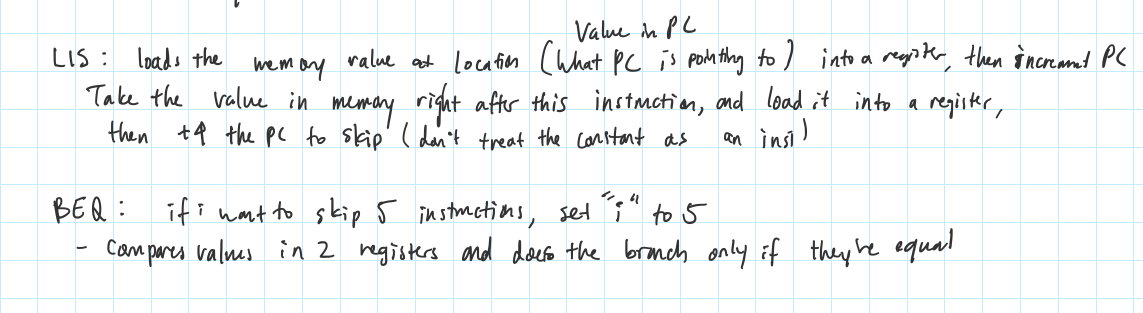 Value in PC
LIS : loads the memory value at location (What PC is pointing to) into a register, then increment PC
Take the value in memory right after this instruction, and load it into a register,
then +4 the PC to skip (don't treat the constant as an inst)
BEQ : if i want to skip 5 instructions, set "i" to 5
- Compares values in 2 registers and does the branch only if they're equal